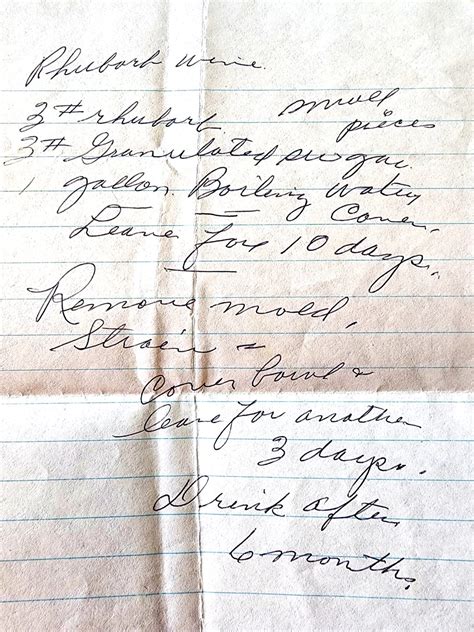 Rhubarb wine.
3# rhubarb small pieces
3# Granulated sugar.
1 gallon Boiling Water
Cover.
Leave for 10 days.
Remove mold.
Strain &
cover bowl &
leave for another
3 days.
Drink after
6 months.